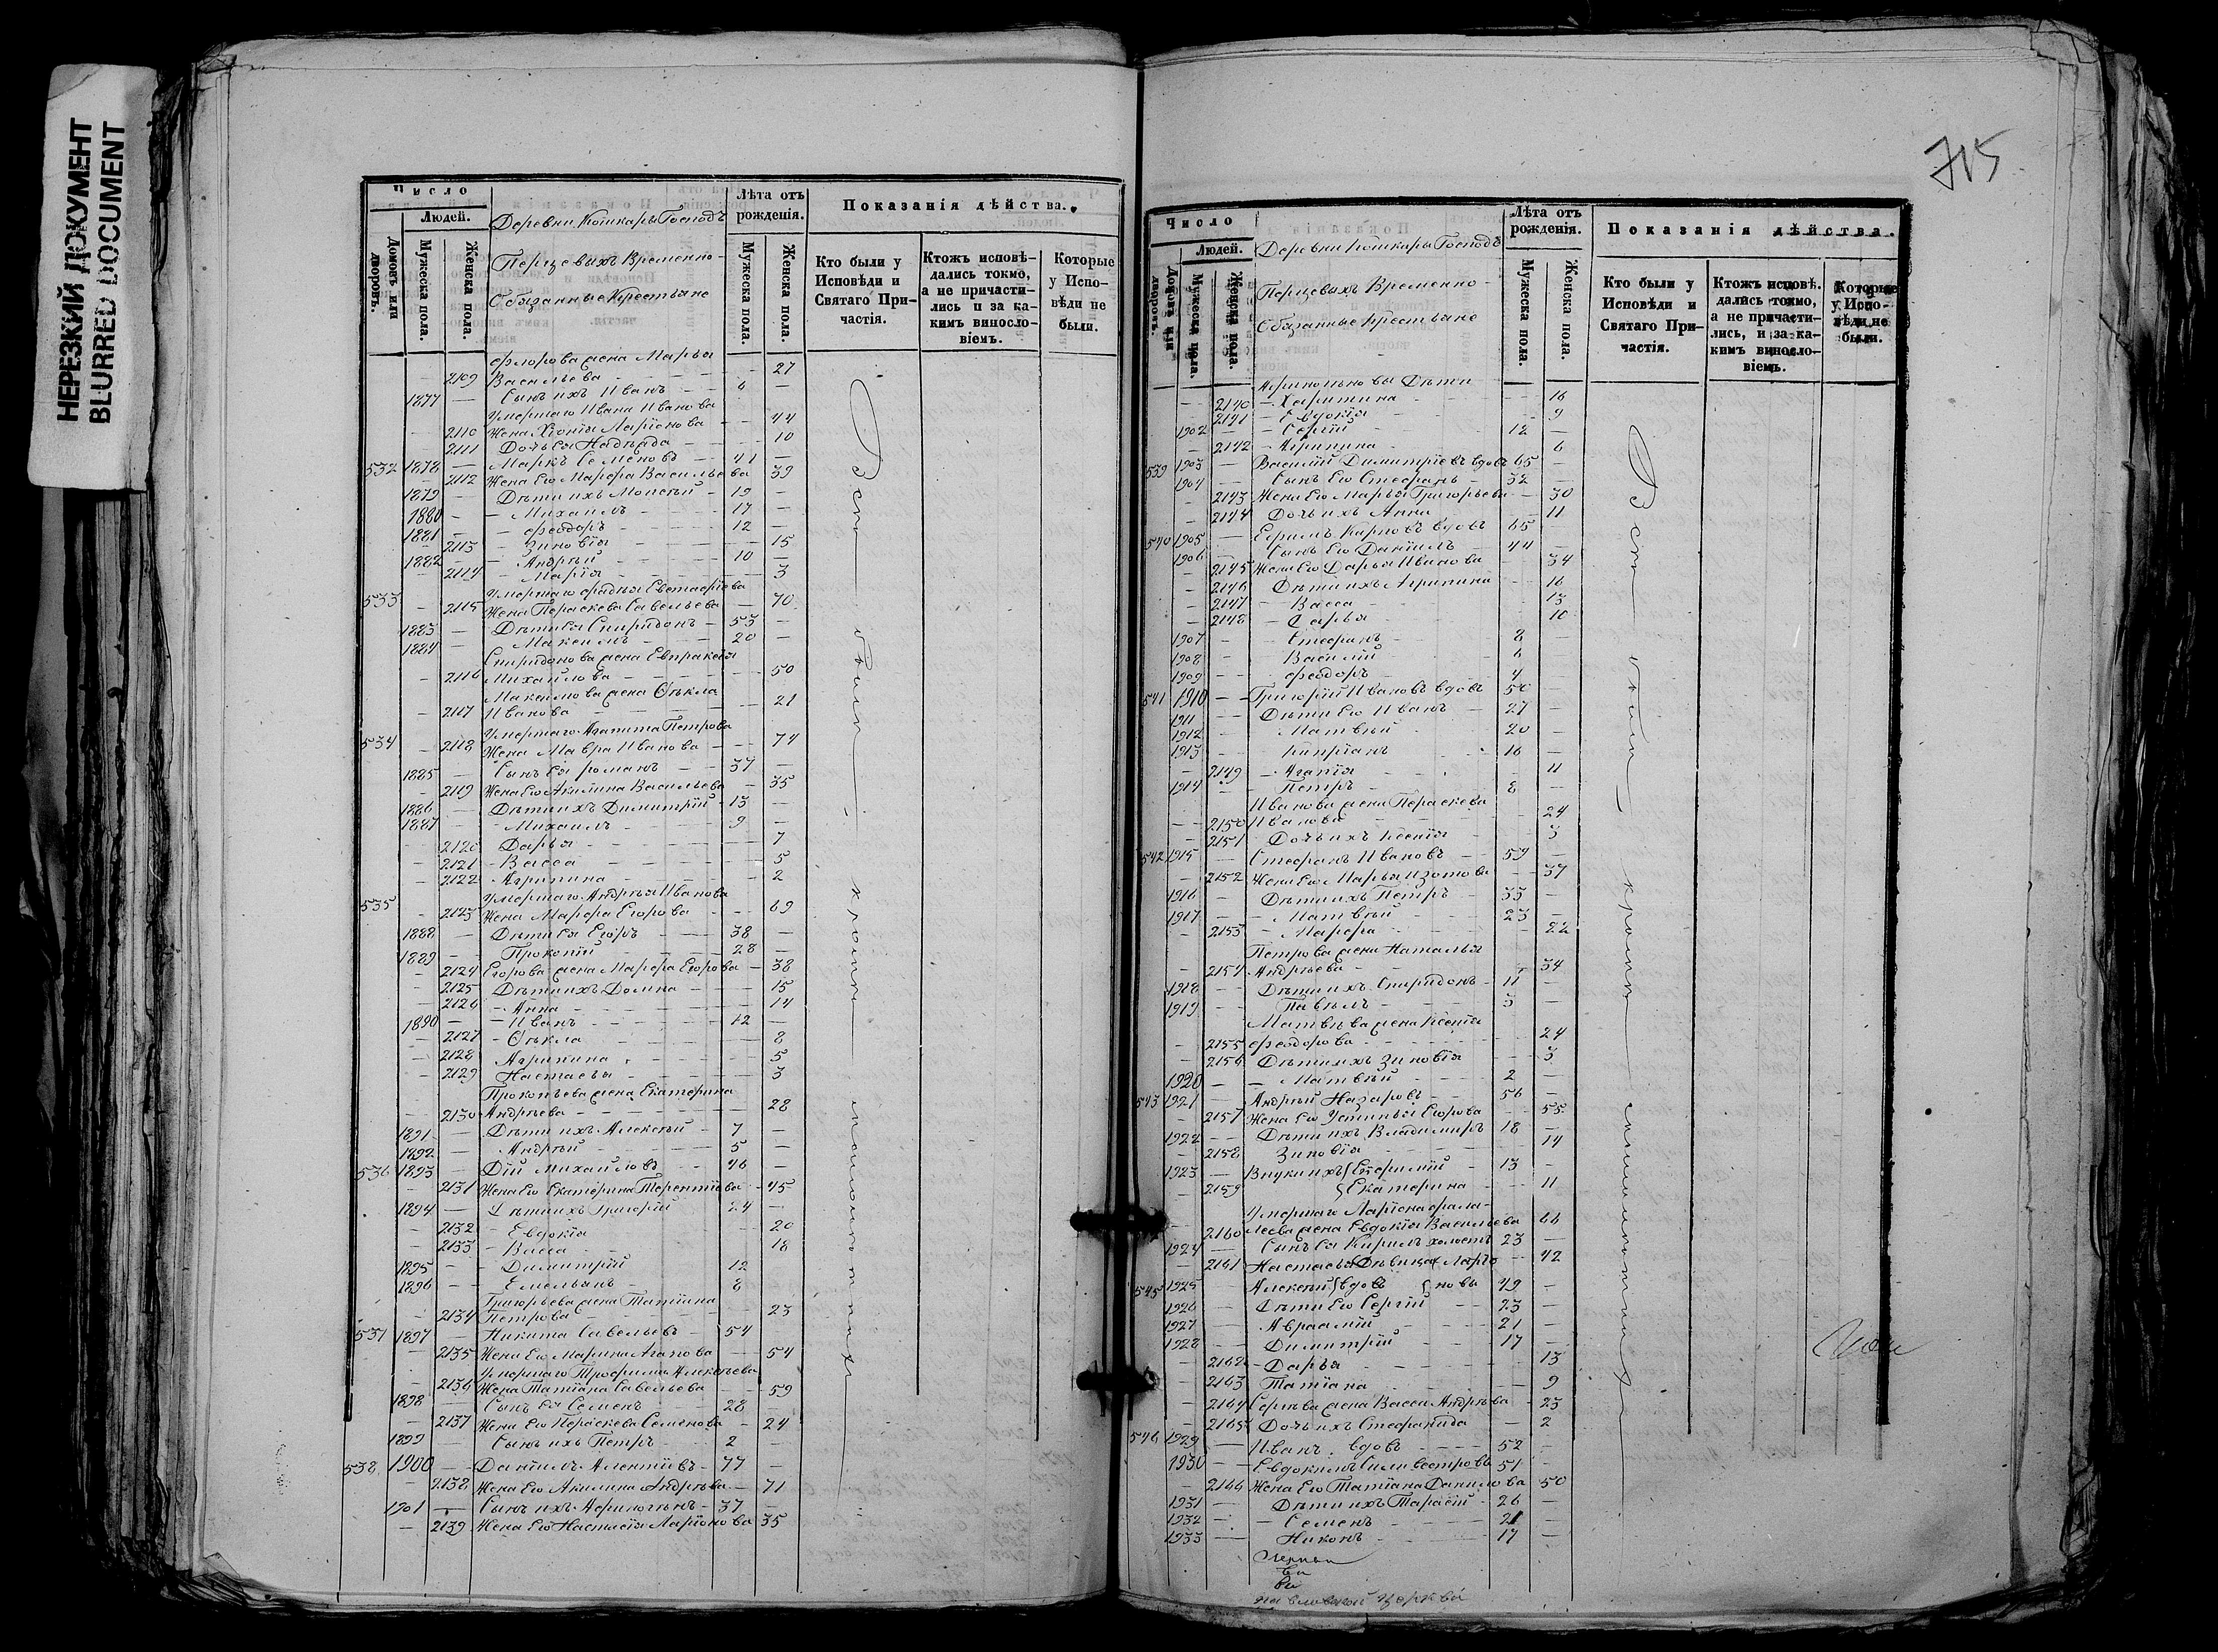 НЕРЕЗКИЙ ДОКУМЕНТ
BLURRED DOCUMENT
Число
Людей.
Домовъ или дворовъ.
Мужеска пола.
Женска пола.
Деревни Кошкары Господъ
Перцевыхъ Временно-
Обязанные Крестьяне
Лѣта отъ рожденія.
Мужеска пола.
Женска пола.
Показанія дѣйства.
Кто были у Исповѣди и Святаго Причастія.
Ктожъ исповѣ-
дались токмо,
а не причасти-
лись и за ка-
кимъ винословіемъ.
Которые
у Испо-
вѣди не
были.
Флорова жена Марья
2109 Васильева 27
1877 Сынъ ихъ Иванъ 6
Умершаго Ивана Иванова
2110 Жена Хіонія Ларіонова 44
2111 Дочь Ея Надѣжда 10
532 1878 Маркъ Семеновъ 41
2112 Жена Его Марфа Васильева 39
1879 Дѣти ихъ Моисѣй 19
1880 Михаилъ 17
1881 Феодоръ 12
2113 Зиновія 15
1882 Андрѣй 10
2114 Марія 3
533 Умершаго Фадѣя Евстафіева
2115 Жена Пераскева Савельева 70
1883 Дѣти Ея Спиридонъ 53
1884 Максимъ 20
Спиридонова жена Евпраксія
2116 Михайлова 50
Максимова жена Ѳекла
2117 Иванова 21
534 Умершаго Агапита Петрова
2118 Жена Мавра Иванова 74
1885 Сынъ Ея Романъ 37
2119 Жена Его Акилина Васильева 35
1886 Дѣти ихъ Димитрій 13
1887 Михаилъ 9
2120 Дарья 7
2121 Васса 5
2122 Агрипина 2
535 Умершаго Андрѣя Иванова
2123 Жена Марфа Егорова 69
1888 Дѣти Ея Егоръ 38
1889 Прокопій 28
2124 Егорова жена Марфа Егорова 38
2125 Дѣти ихъ Домна 15
2126 Анна 14
1890 Иванъ 12
2127 Ѳекла 8
2128 Агрипина 5
2129 Настасья 3
Прокопьева жена Екатерина
2130 Андрѣева 28
1891 Дѣти ихъ Алексѣй 7
1892 Андрѣй 5
536 1893 Дій Михайловъ 46
2131 Жена Его Екатерина Терентіева 45
1894 Дѣти ихъ Григорій 24
2132 Евдокія 20
2133 Васса 18
1895 Димитрій 12
1896 Емельянъ 8
Григорьева жена Татіана
2134 Петрова 23
537 1897 Никита Савельевъ 54
2135 Жена Его Марина Агапова 54
Умершаго Трофима Алексѣева
2136 Жена Татіана Савельева 59
1898 Сынъ Ея Семенъ 28
2137 Жена Его Пераскева Семенова 24
1899 Сынъ ихъ Петръ 2
538 1900 Даніилъ Алентіевъ 77
2138 Жена Его Акилина Андрѣева 71
1901 Сынъ ихъ Афиногенъ 37
2139 Жена Его Настасія Ларіонова 35
Всѣ были кромѣ малолѣтнихъ
715
Число
Людей.
Домовъ или дворовъ.
Мужеска пола.
Женска пола.
Деревни Кошкары Господъ
Перцевыхъ Временно-
Обязанные Крестьяне
Лѣта отъ рожденія.
Мужеска пола.
Женска пола.
Показанія дѣйства.
Кто были у Исповѣди и Святаго Причастія.
Ктожъ исповѣ-
дались токмо,
а не причасти-
лись, и за ка-
кимъ винословіемъ.
Которые
у Испо-
вѣди не
были.
Дѣти
2140 Харитина 16
2141 Евдокія 9
1902 Сергій 12
2142 Агрипина 6
539 1903 Василій Димитріевъ вдовъ 65
1904 Сынъ Его Стефанъ 32
2143 Жена Его Марья Григорьева 30
2144 Дочь ихъ Анна 11
540 1905 Ефимъ Карповъ вдовъ 65
1906 Сынъ Его Даніилъ 44
2145 Жена Его Дарья Иванова 34
2146 Дѣти ихъ Агрипина 16
2147 Васса 13
2148 Дарья 10
1907 Стефанъ 8
1908 Василій 6
1909 Феодоръ 4
541 1910 Григорій Ивановъ вдовъ 50
1911 Дѣти Его Иванъ 27
1912 Матвѣй 20
1913 Кипріанъ 16
2149 Агапія 11
1914 Петръ 8
Иванова жена Пераскева
2150 Иванова 24
2151 Дочь ихъ Ксенія 3
542 1915 Стефанъ Ивановъ 59
2152 Жена Его Марья Изотова 37
1916 Дѣти ихъ Петръ 33
1917 Матвѣй 23
2153 Марфа 22
Петрова жена Наталья
2154 Андрѣева 34
1918 Дѣти ихъ Спиридонъ 11
1919 Павелъ 3
Матвѣева жена Ксенія
2155 Феодорова 24
2156 Дѣти ихъ Зиновія 3
1920 Матвѣй 2
543 1921 Андрѣй Назаровъ 56
2157 Жена Его Устинья Егорова 55
1922 Дѣти ихъ Владимиръ 18
2158 Зиновія 14
1923 Внуки ихъ Евфимій 13
2159 Екатерина 11
Умершаго Ларіона Фала-
2160 леева жена Евдокія Васильева 66
1924 Сынъ Ея Кирилъ холостъ 23
2161 Настасья Дѣвица Ларіо- 42
545 1925 Алексѣй вдовъ новы 49
1926 Дѣти Его Сергій 23
1927 Авраамій 21
1928 Димитрій 17
2162 Дарья 13
2163 Татіана 9
2164 Сергѣева жена Васса Андрѣева 23
2165 Дочь ихъ Стефанида 2
546 1929 Иванъ вдовъ 52
1930 Евдокимъ Силивестровъ 51
2166 Жена Его Татіана Данилова 50
1931 Дѣти ихъ Тарасій 26
1932 Семенъ 21
1933 Никонъ 17
Всѣ были кромѣ малолѣтнихъ